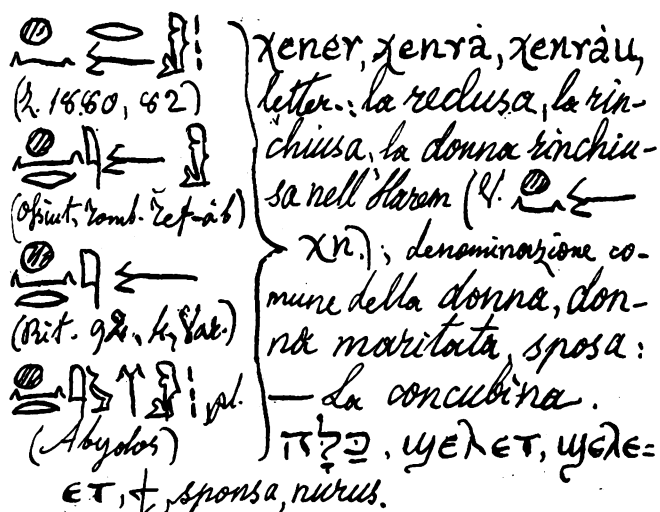 (Z. 1880, 82)
(Rit. 92, 4, Var.)
pl.
(Abydos)
χener, χenrà, χenràu,
letter.: la reclusa, la rin-
chiusa, la donna rinchiu-
sa nell'Harem (V.
χn.); denominazione co-
mune della donna, don-
na maritata, sposa:
— La concubina.
כַּלָּה, ϣⲉⲗⲉⲧ, ϣⲉⲗⲉ=
ⲉⲧ, ϯ, sponsa, nurus.